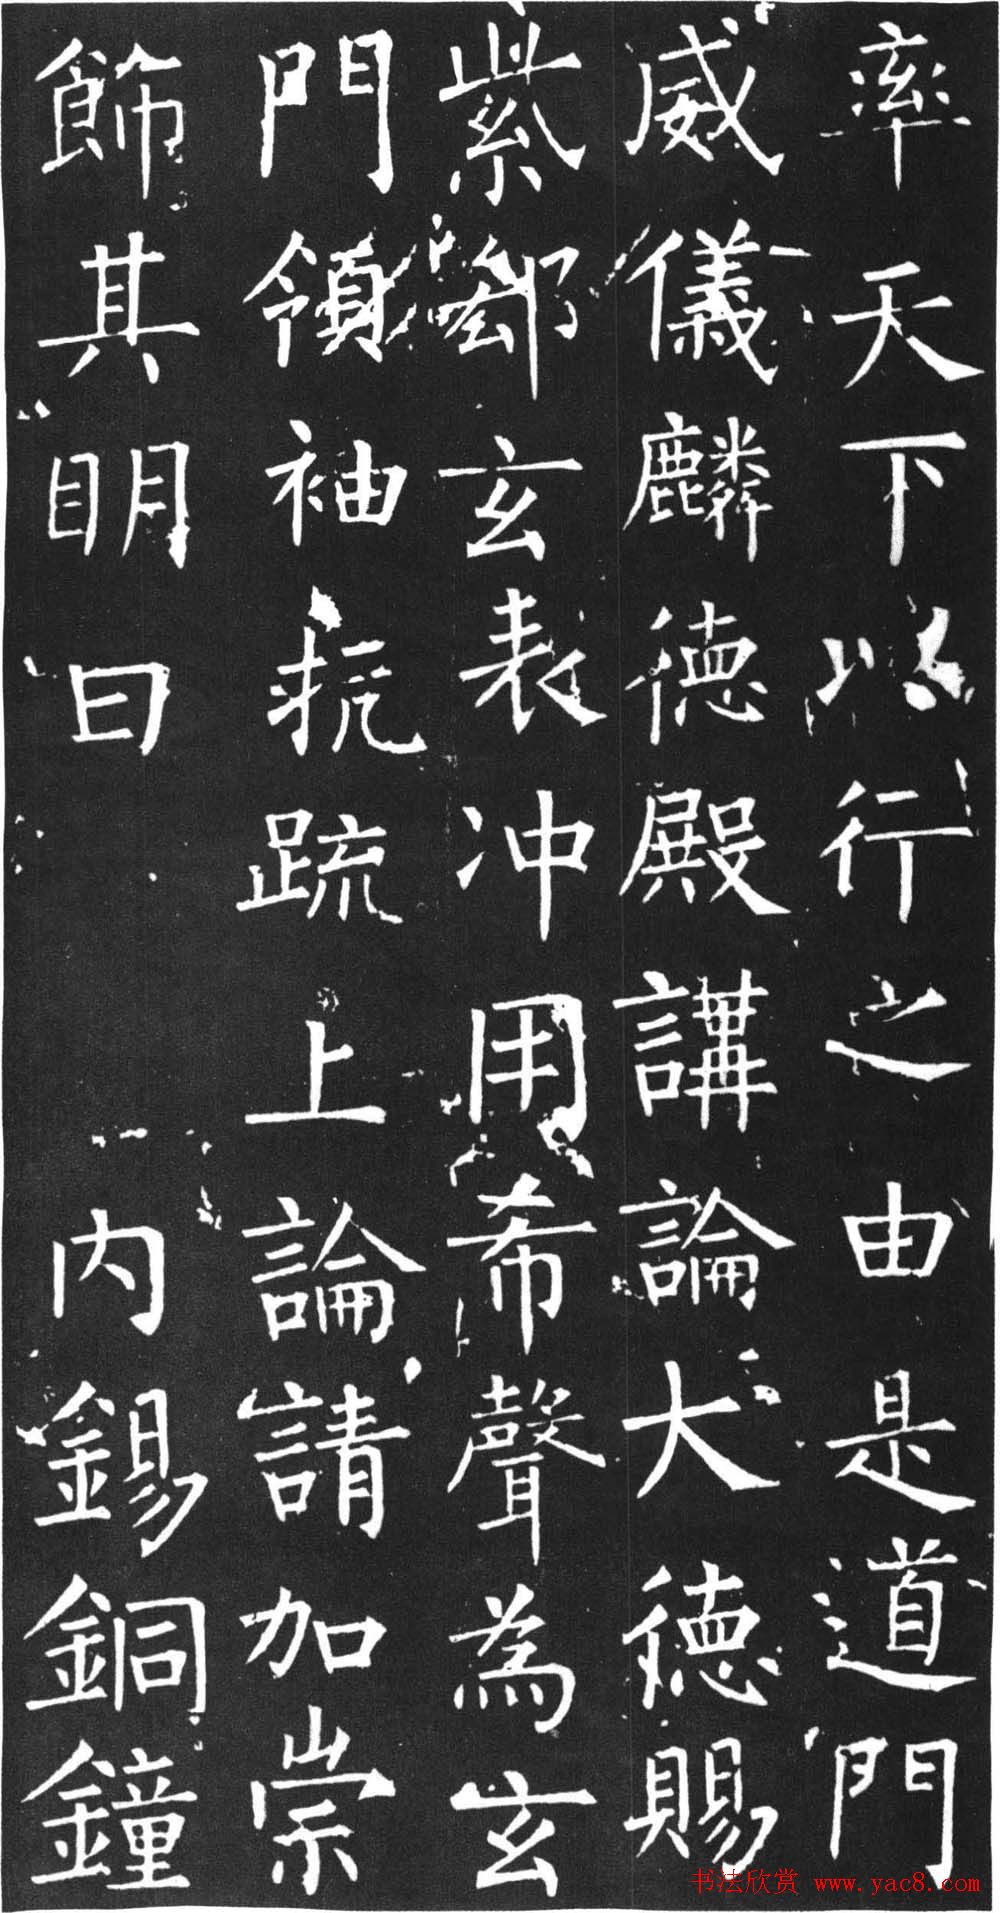 率天下以行之由是道門
威儀麟德殿講論大德賜
紫鄒玄表沖用希聲為玄
門領袖抗疏上論請加崇
飾其明日內錫銅鐘
书法欣赏 www.yac8.com